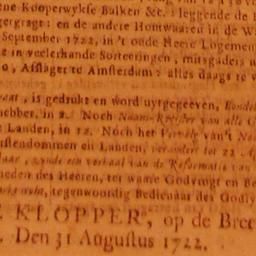 ene Kooperwykse Balken &c. : leggende de
gergrage: en de andere Houtwaaren in de W
September 1722, in 't oude Heere Logement
te in veelerhande Sorteeringen, mitsgaders
o, Afslager te Amsterdam: alles daags te
aat, is gedrukt en word uytgegeeven,
hebber, in 8. Noch Naam-Register van alle
Landen, in 12. Noch het Vervolg van 't
stendommen en Landen, verandert tot 22
aar, zynde een verhaal van de Reformatie van
heden des Heeren, ter waare Godvrugt en Be
tegenwoordig Bedienaar des Godly
E KLOPPER, op de Bree
Den 31 Augustus 1722.